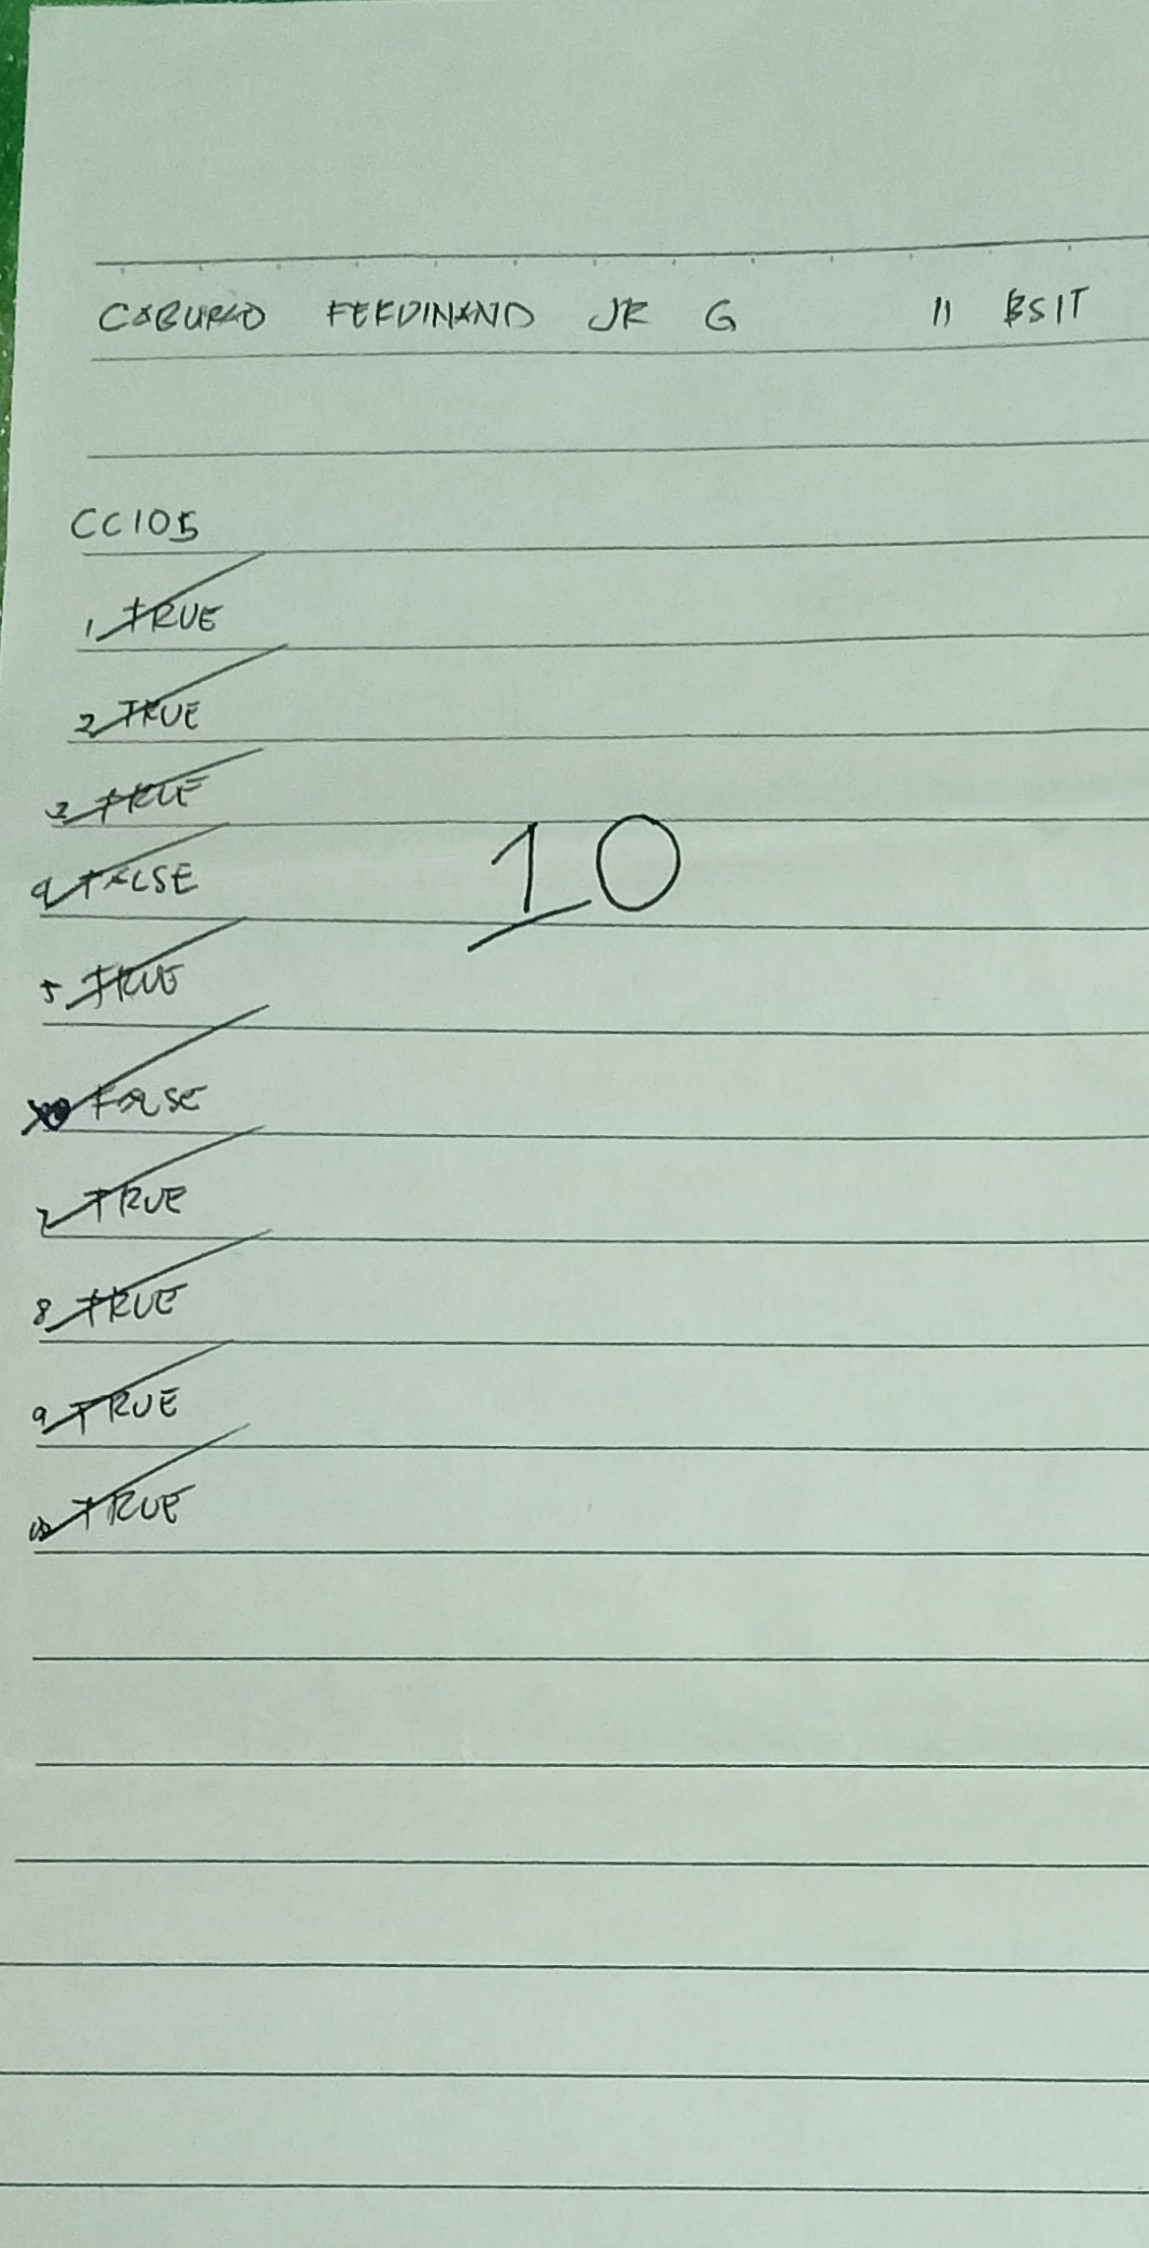 CABURAO FERDINAND JR G II BSIT
CC105
1 TRUE
2 TRUE
3 TRUE
4 FALSE
5 TRUE
FALSE
7 TRUE
8 TRUE
9 TRUE
10 TRUE
10